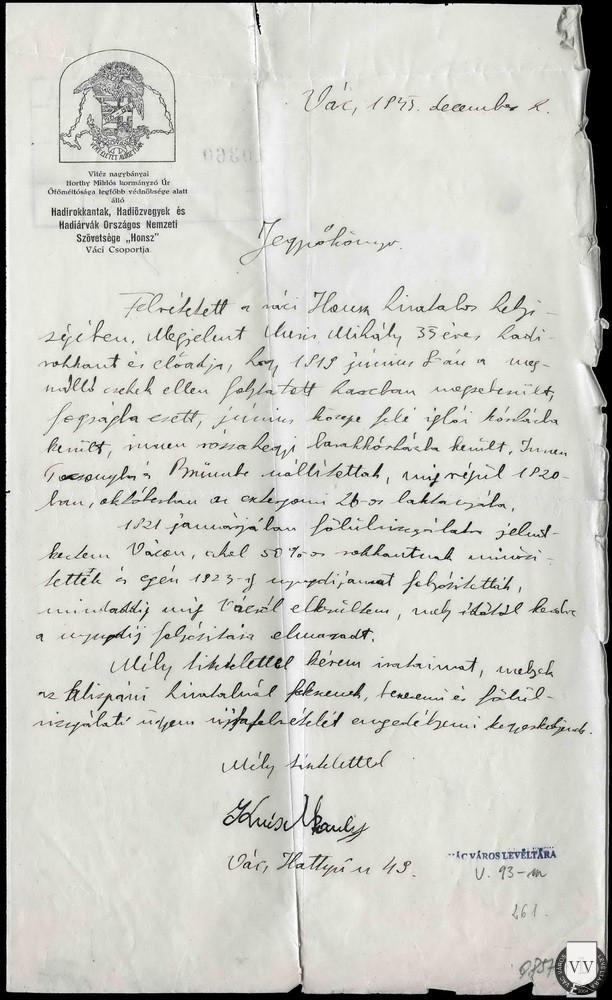 Vitéz nagybányai
Horthy Miklós kormányzó Úr
Őfőméltósága legfőbb védnöksége alatt
álló
Hadirokkantak, Hadiözvegyek és
Hadiárvák Országos Nemzeti
Szövetsége „Honsz"
Váci Csoportja.
Vác, 1943. december 2.
Jegyzőkönyv.
Felvétetett a váci Honsz hivatalos helyi-
ségében. Megjelent Mihály 35 éves hadi-
rokkant és előadja, hogy 1919 június 8-án a meg-
szálló csehek ellen folytatott harcban megsebesült,
fogságba esett, június közepe felé iglói kórházba
került, innen rózsahegyi barakkórházba került. Innen
Pozsonyba s Brünnbe szállították, míg végül 1920-
ban, októberban az esztergomi 26-os laktanyába.
1921 januárjában fölülvizsgálatra jelent-
keztem Vácon, ahol 50%-os rokkantnak minősi-
tettek és egén 1923-ig nyugdíjamat folyósították,
mindaddig míg Vácról elkerültem, mely időtől kezdve
a nyugdíj folyósítása elmaradt.
Mély tisztelettel kérem irataimat, melyek
az alispáni hivatalnál fekszenek, beszerezni és fölül-
vizsgálati ügyem újrafelvételét engedélyezni kegyeskedjenek.
Mély tisztelettel
Vác, Hattyú u 43.
VÁC VÁROS LEVÉLTÁRA
V. 93-m
261.